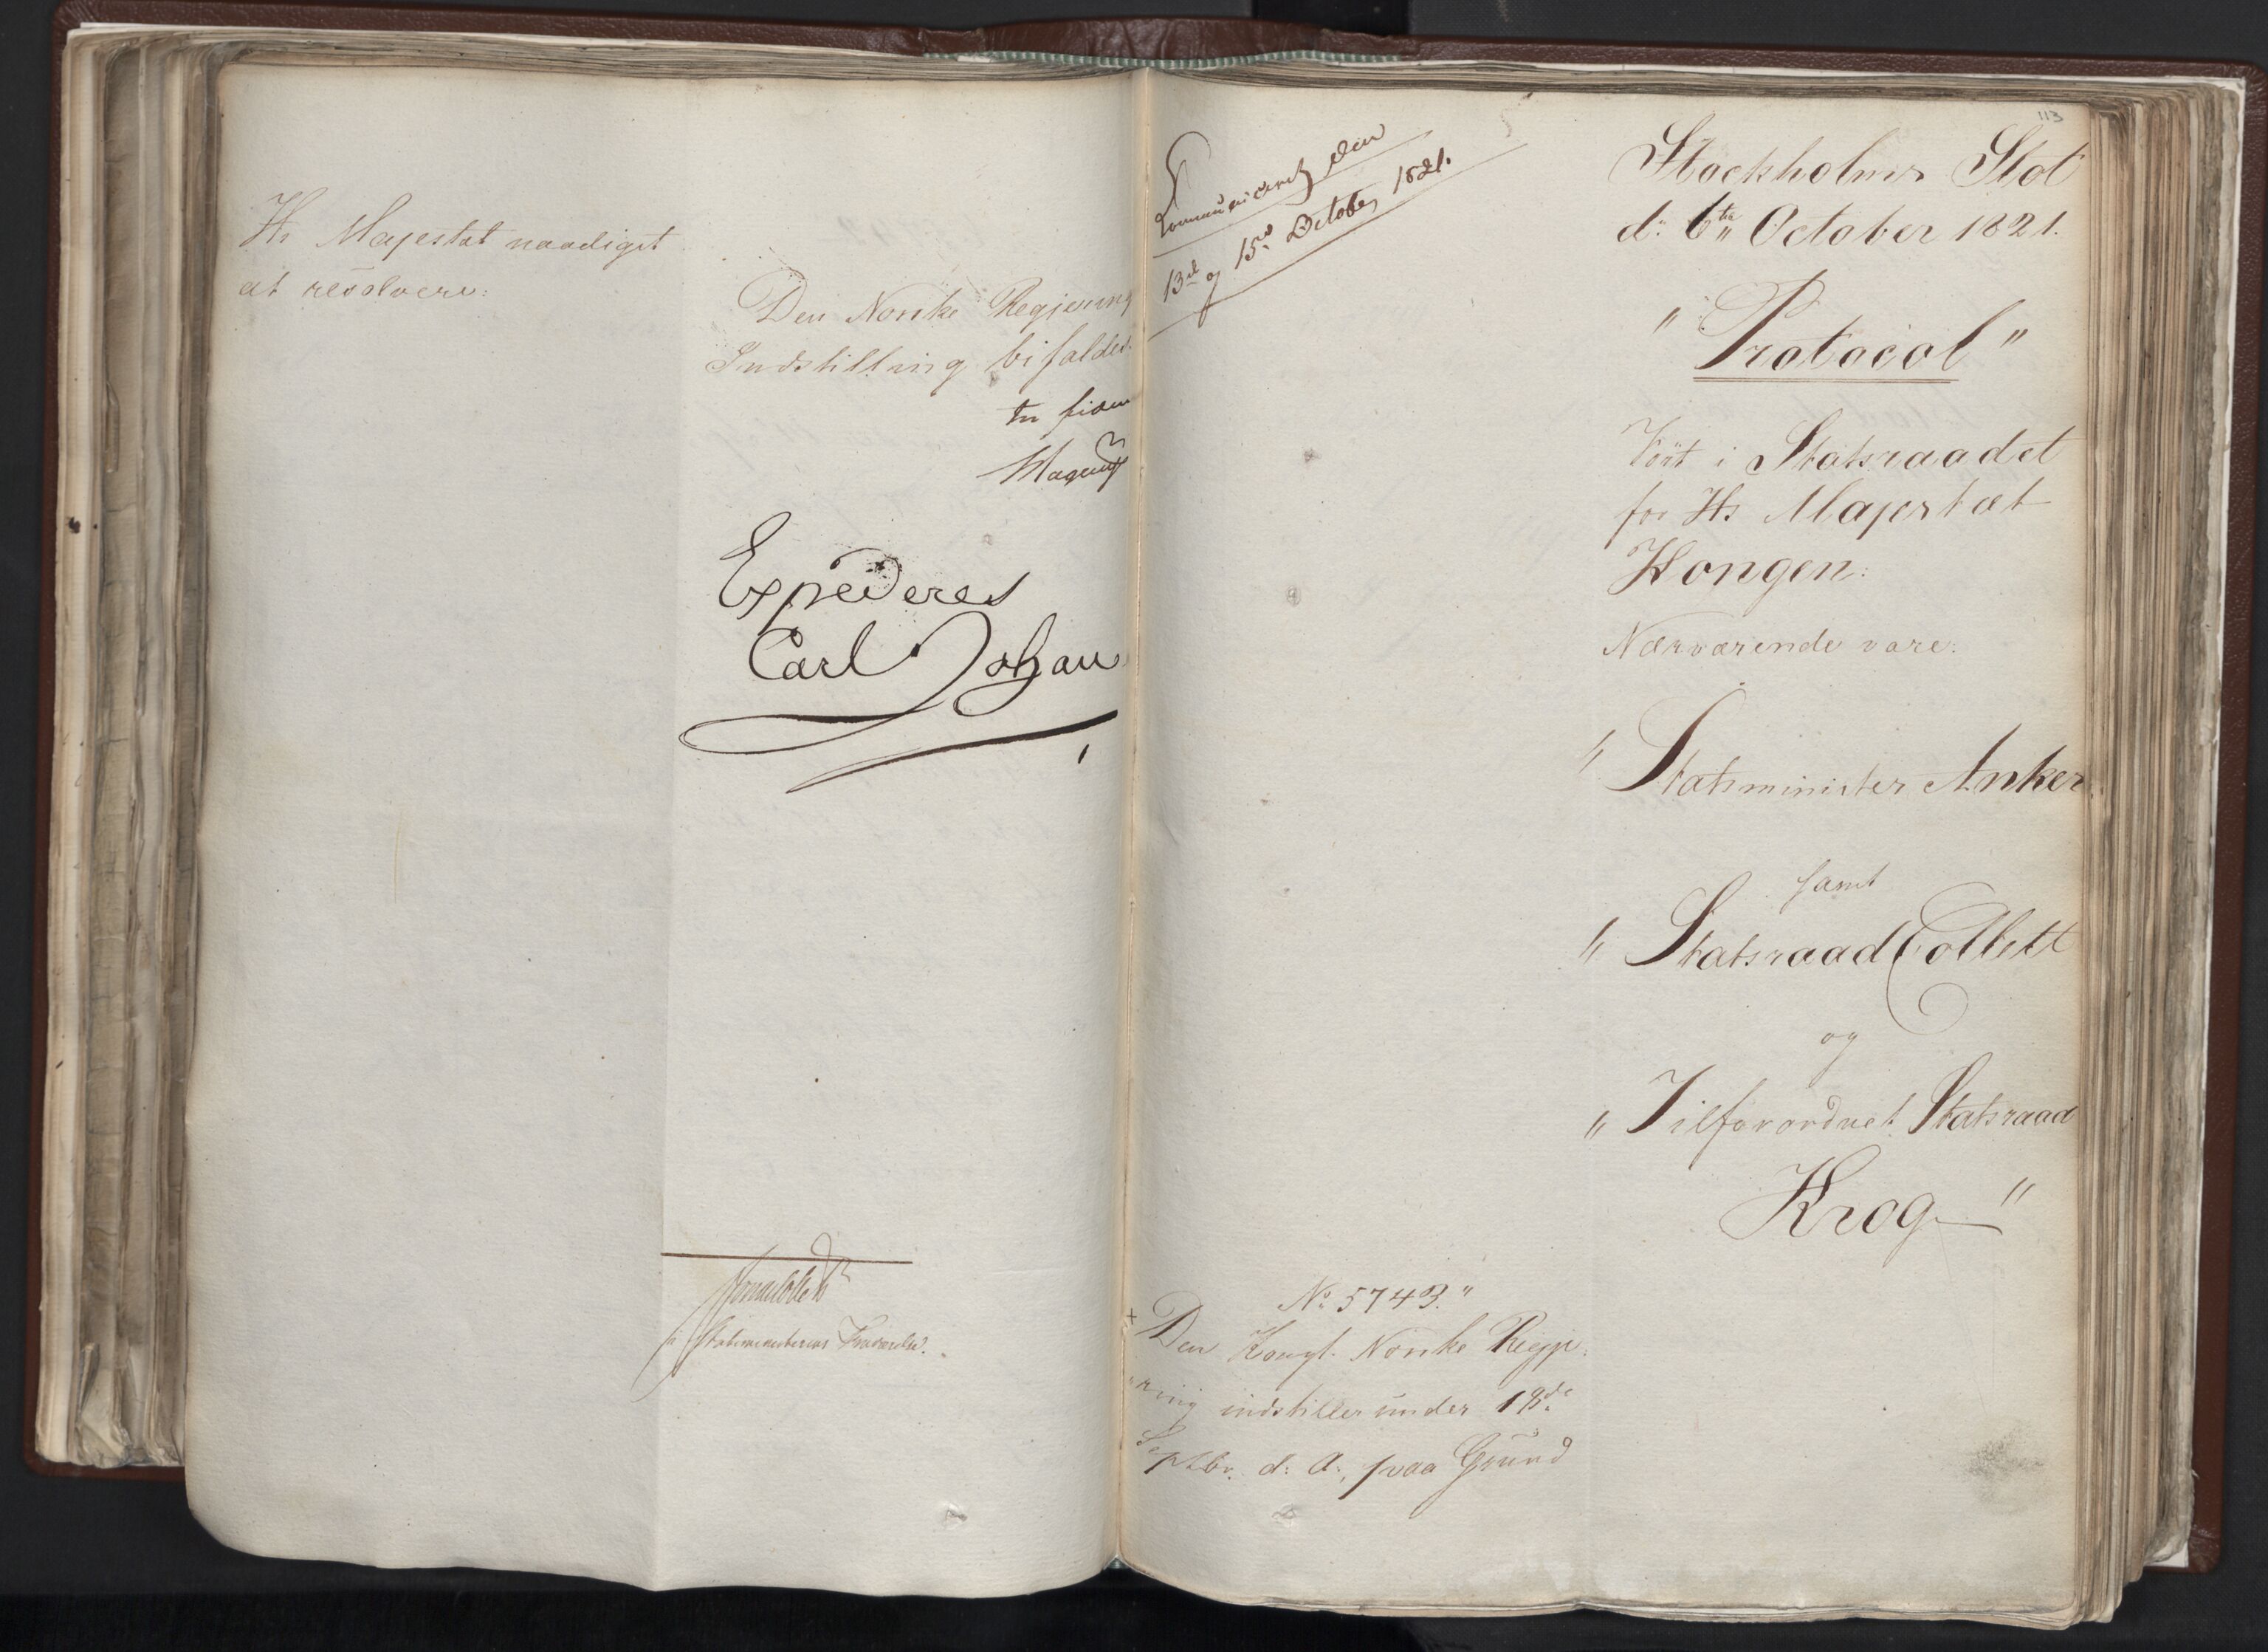 Hs Majestæt naadigst
at resolvere:
Den Norske Regjerings
Indstilling bifaldes.
in fidem
Expederes
Carl Johan
i Statsministerens Fraværelse.
Communiceret den
13de og 15de October 1821.
113
Stockholms Slot
d: 6te October 1821.
"Protocol"
Ført i Statsraadet
for Hs Majestæt
Kongen:
Nærværende vare:
" Statsminister Anker
samt
" Statsraad Collett
og
" Tilforordnet Statsraad
Krog "
No 5743."
Den Kongl. Norske Regje:
"ring indstiller under 18de
Septbr. d: A:, paa Grund